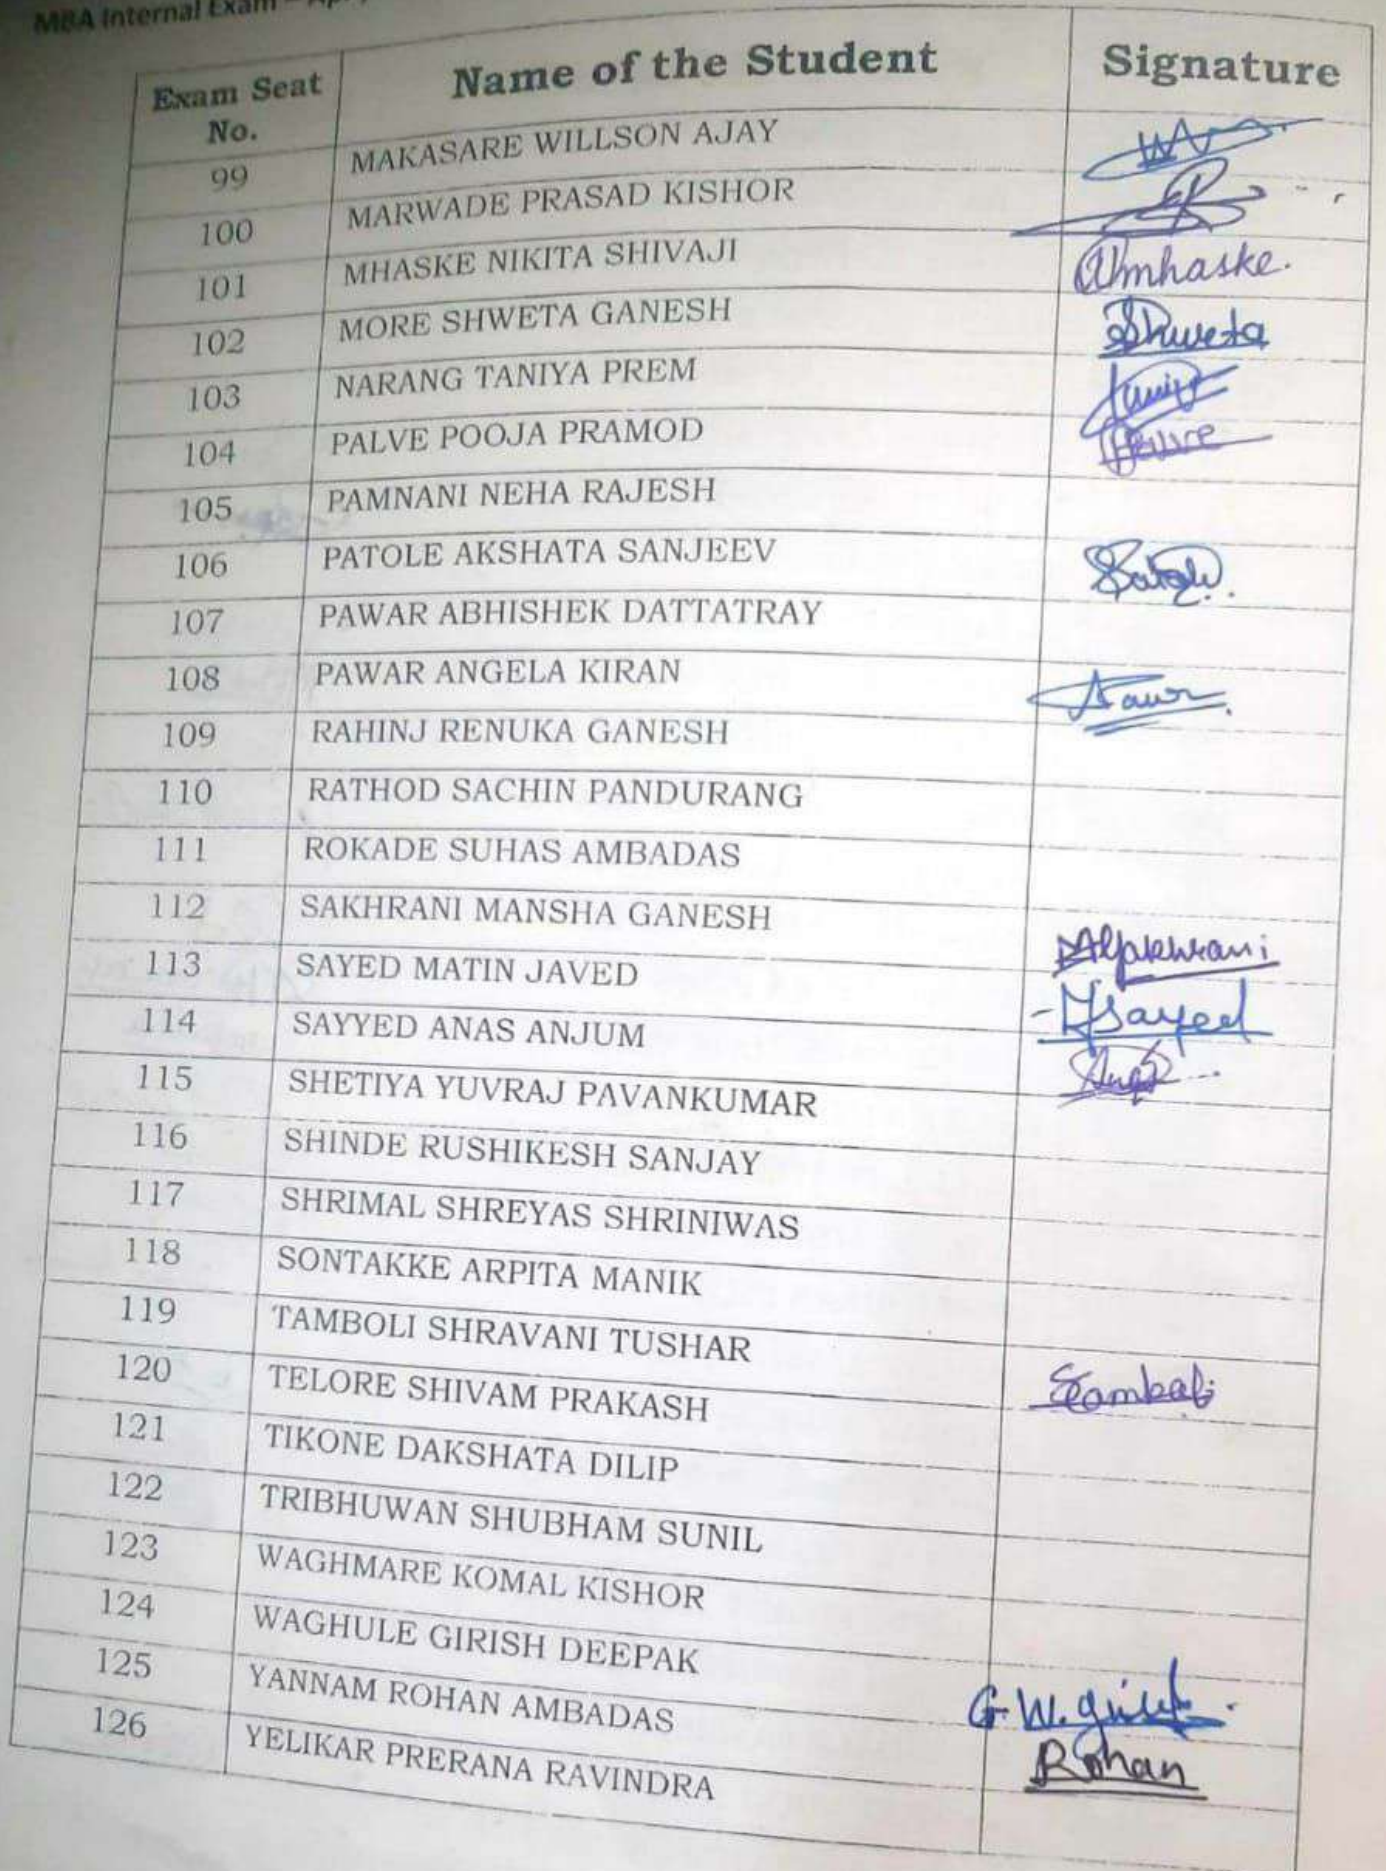 MBA Internal Exam –
Exam Seat No. Name of the Student Signature
99 MAKASARE WILLSON AJAY
100 MARWADE PRASAD KISHOR
101 MHASKE NIKITA SHIVAJI mhaske.
102 MORE SHWETA GANESH Shweta
103 NARANG TANIYA PREM
104 PALVE POOJA PRAMOD
105 PAMNANI NEHA RAJESH
106 PATOLE AKSHATA SANJEEV
107 PAWAR ABHISHEK DATTATRAY
108 PAWAR ANGELA KIRAN
109 RAHINJ RENUKA GANESH
110 RATHOD SACHIN PANDURANG
111 ROKADE SUHAS AMBADAS
112 SAKHRANI MANSHA GANESH
113 SAYED MATIN JAVED Sayed
114 SAYYED ANAS ANJUM
115 SHETIYA YUVRAJ PAVANKUMAR
116 SHINDE RUSHIKESH SANJAY
117 SHRIMAL SHREYAS SHRINIWAS
118 SONTAKKE ARPITA MANIK
119 TAMBOLI SHRAVANI TUSHAR
120 TELORE SHIVAM PRAKASH
121 TIKONE DAKSHATA DILIP
122 TRIBHUWAN SHUBHAM SUNIL
123 WAGHMARE KOMAL KISHOR
124 WAGHULE GIRISH DEEPAK G.W.
125 YANNAM ROHAN AMBADAS Rohan
126 YELIKAR PRERANA RAVINDRA